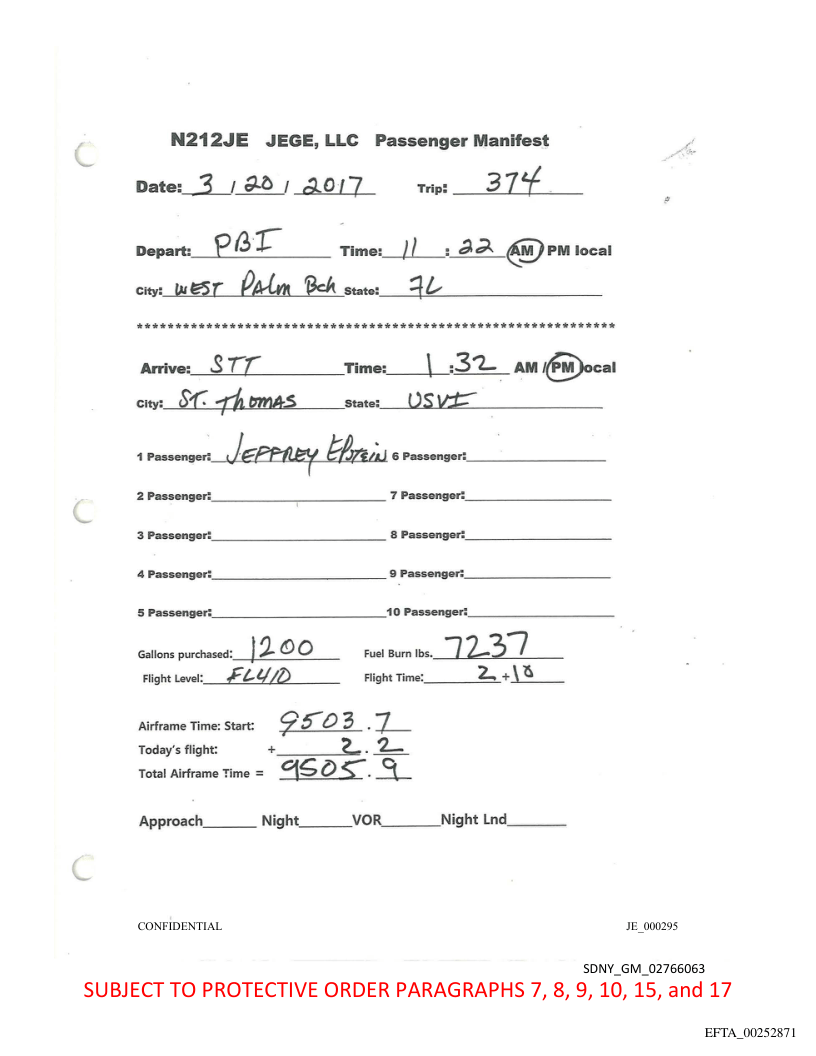 N212JE JEGE, LLC Passenger Manifest
Date: 3 / 20 / 2017 Trip: 374
Depart: PBI Time: 11 : 22 AM PM local
City: WEST PALM Bch State: FL
***************************************************************
Arrive: STT Time: 1 :32 AM / PM local
City: ST. Thomas State: USVI
1 Passenger: JEFFREY EPSTEIN 6 Passenger:
2 Passenger: 7 Passenger:
3 Passenger: 8 Passenger:
4 Passenger: 9 Passenger:
5 Passenger: 10 Passenger:
Gallons purchased: 1200 Fuel Burn lbs. 7237
Flight Level: FL410 Flight Time: 2 + 10
Airframe Time: Start: 9503 . 7
Today's flight: + 2 . 2
Total Airframe Time = 9505 . 9
Approach Night VOR Night Lnd
CONFIDENTIAL JE_000295
SDNY_GM_02766063
SUBJECT TO PROTECTIVE ORDER PARAGRAPHS 7, 8, 9, 10, 15, and 17
EFTA_00252871